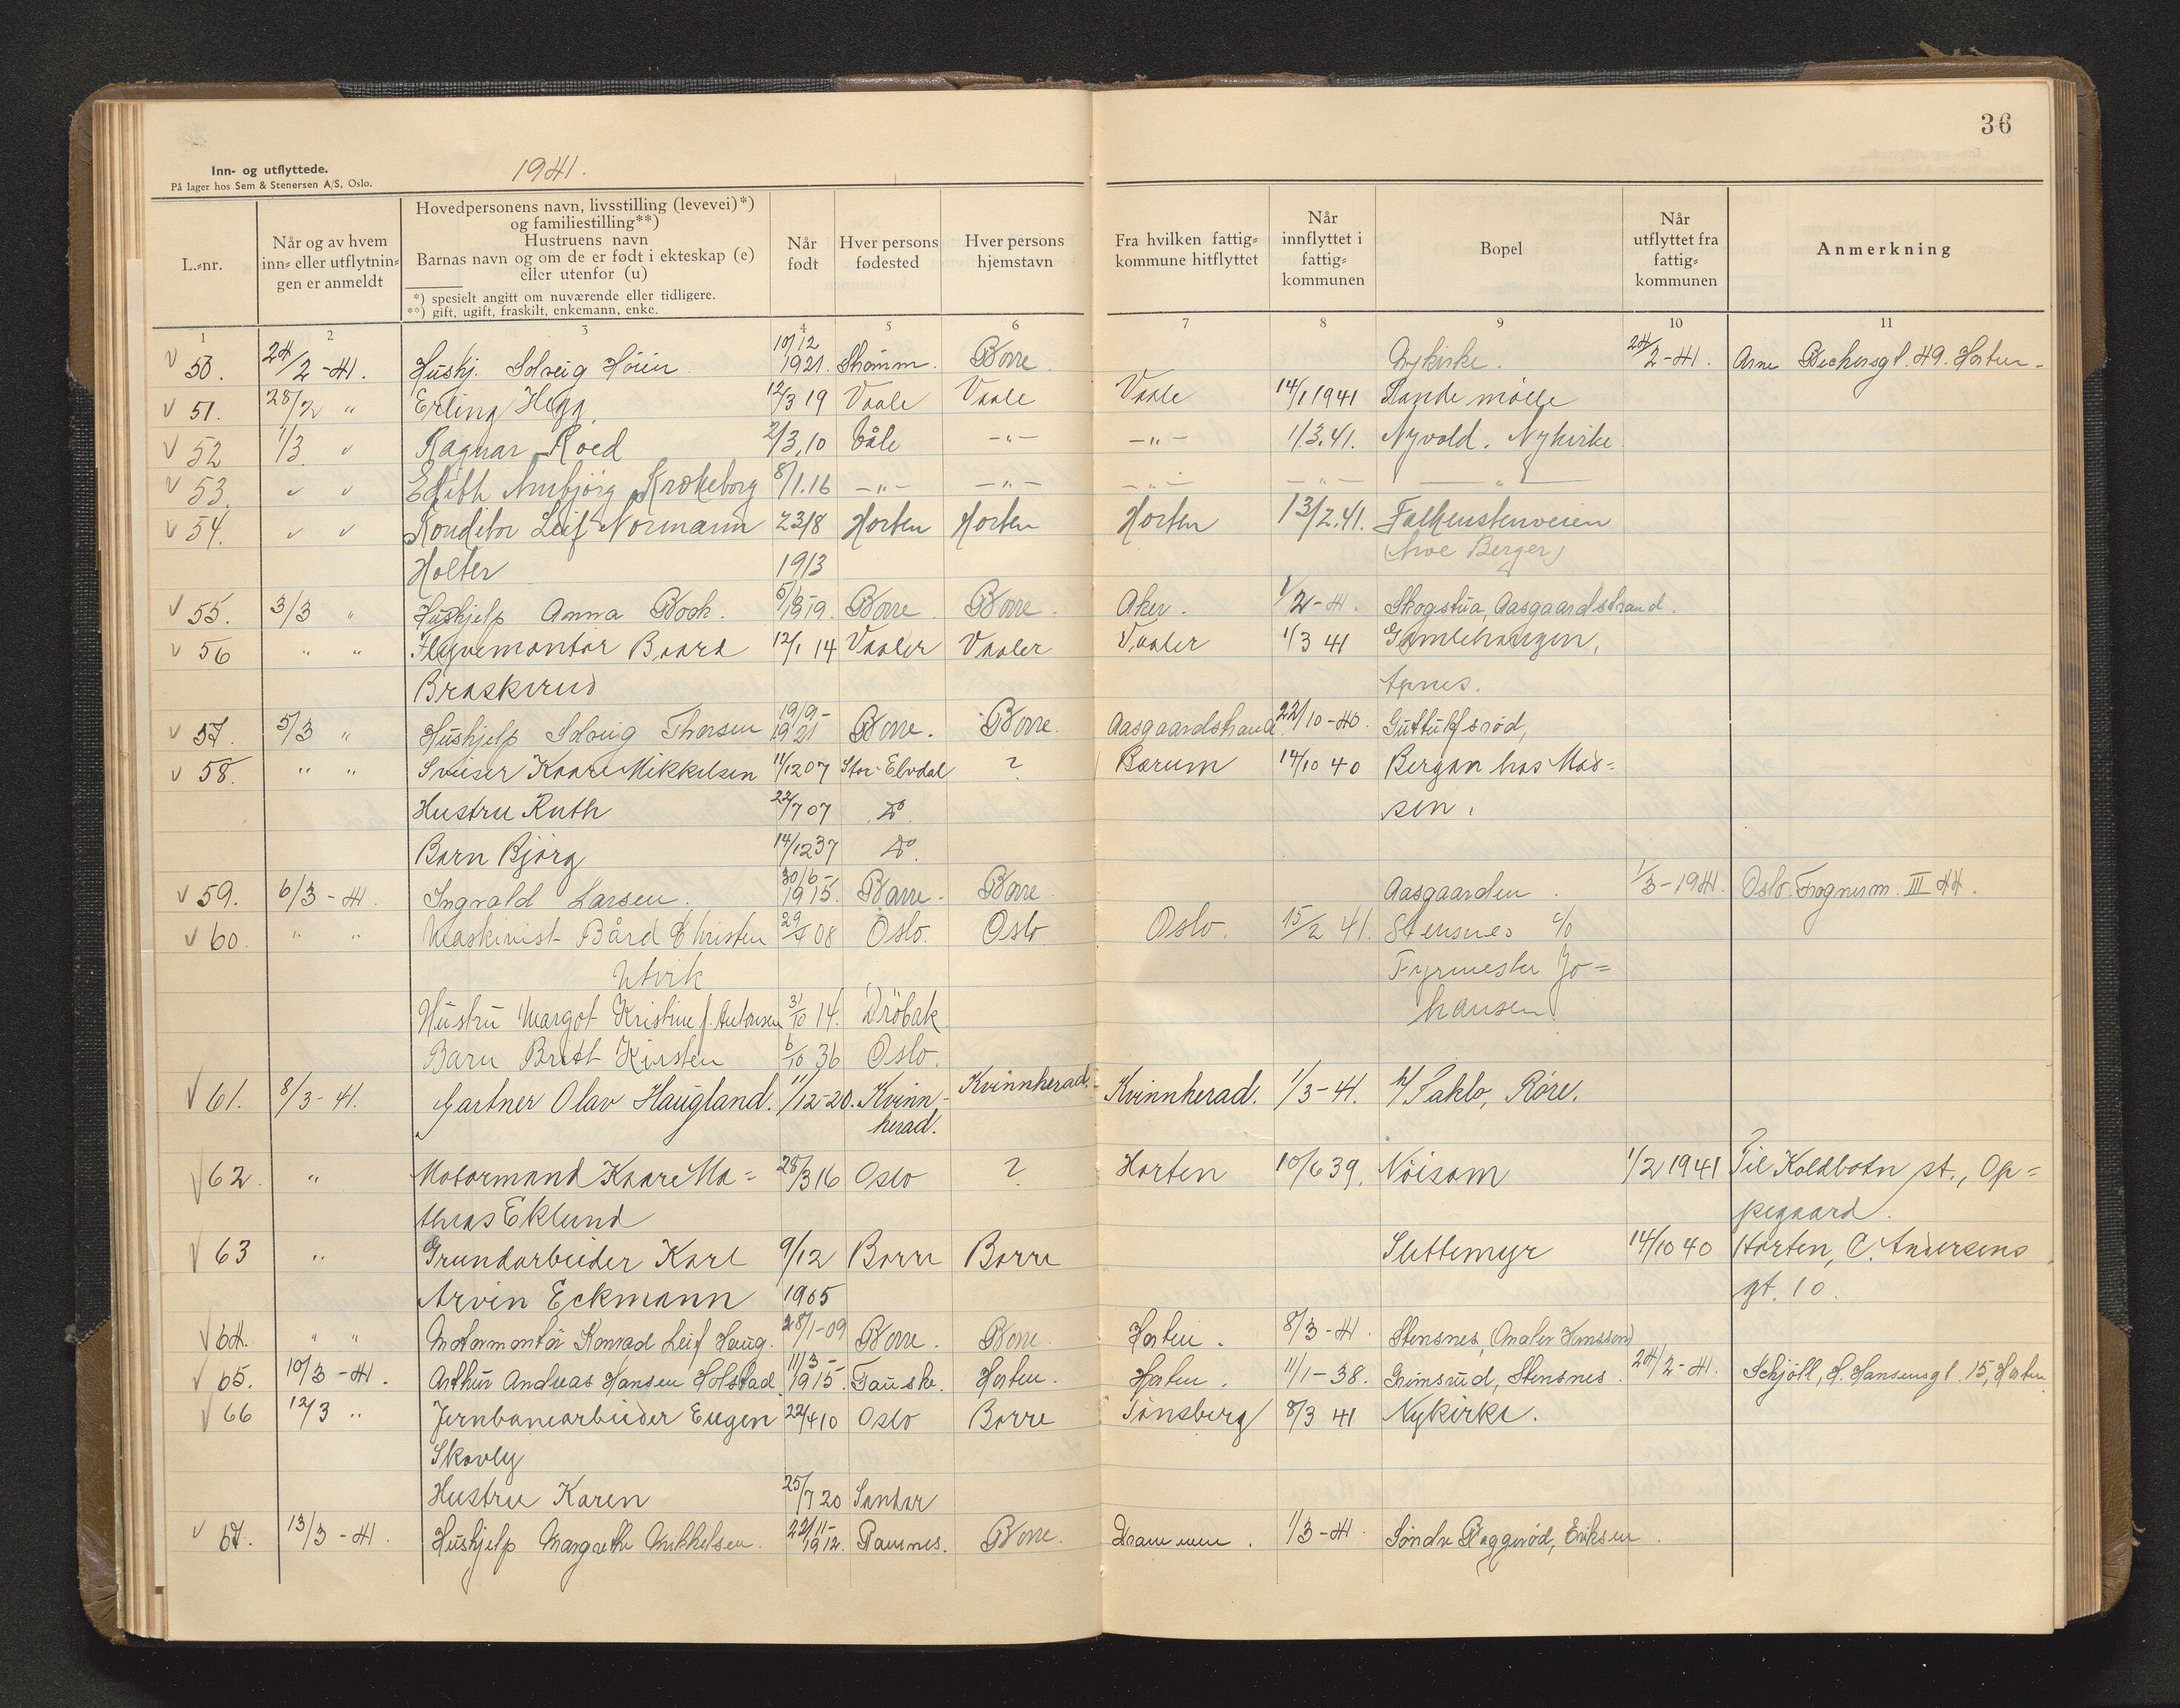 36
Inn- og utflyttede.
På lager hos Sem & Stenersen A/S, Oslo.
1941.
L.-nr.
Når og av hvem inn- eller utflytningen er anmeldt
Hovedpersonens navn, livsstilling (levevei)*)
og familiestilling**)
Hustruens navn
Barnas navn og om de er født i ekteskap (e)
eller utenfor (u)
*) spesielt angitt om nuværende eller tidligere.
**) gift, ugift, fraskilt, enkemann, enke.
Når født
Hver persons fødested
Hver persons hjemstavn
Fra hvilken fattig-kommune hitflyttet
Når innflyttet i fattig-kommunen
Bopel
Når utflyttet fra fattig-kommunen
Anmerkning
1 2 3 4 5 6 7 8 9 10 11
50. 24/2 - 41. Hushj. Solveig Höien 10/12 1921. Skömm. Borre. Nykirke. 24/2 - 41. Arne Bechersgt. 49. Horten
51. 28/2 " Erling Hegg 12/3 19 Vaale Vaale Vaale 14/1 1941 Sande mölle
52 1/3 " Ragnar Roed 2/3, 10 Våle -"- -"- 1/3. 41. Nyvold. Nykirke
53. " " Edith Annbjörg Krokeborg 8/1. 16 -"- -"- -"- -"- "
54. " " Konditor Leif Normann 23/8 Horten Horten Horten 13/2. 41. Falkenstenveien
Holter 1913 (Arve Berger)
55. 3/3 " Hushjelp Anna Bock. 5/8 - 19. Borre. Borre. Aker. 1/2 - 41. Skogstua, Aasgaardstrand.
56 " " Flyvemontör Baard 12/1 14 Vaaler Vaaler Vaaler 1/3 41 Gamlehaugen,
Braskerud Apnes.
57. 5/3 " Hushjelp Solveig Thorsen 19/9 - 1921 Borre. Borre. Aasgaardstrand 22/10 - 40. Guttulfsröd,
58. " " Sveiser Kaare Mikkelsen 11/12 07 Stor-Elvdal ? Bærum 14/10 40 Bergan hos Mad-
Hustru Ruth 22/7 07 do sen.
Barn Björg 14/12 37 do.
59. 6/3 - 41. Ingvald Larsen. 30/6 - 1915. Borre. Borre Aasgaarden. 1/3 - 1941. Oslo. Frognerm. III 44.
60. " " Maskinist Bård Christen 29/4 08 Oslo. Oslo Oslo. 15/2 41. Stensnes c/o
Utvik Fyrmester Jo-
Hustru Margot Kristine f. Antonsen 31/10 14. Dröbak hansen.
Barn Britt Kirsten 6/10 36 Oslo.
61. 8/3 - 41. Gartner Olav Haugland. 11/12 - 20. Kvinn-herad. Kvinnherad. Kvinnherad. 1/3 - 41. h/ Paklo, Röre.
62. " Motormand Kaare Ma- 28/3 16 Oslo ? Horten 10/6 39. Nöisom 1/2 1941 Til Koldbotn st., Op-
thias Eklund pegaard.
63 " Grundarbeider Karl 9/12 Borre Borre Slettemyr 14/10 40 Horten, C. Andersens
Arvin Eckmann 1905 gt. 10.
64. " " Motormontör Konrad Leif Haug. 28/1 - 09 Borre. Borre. Horten. 8/3 - 41. Stensnes, (Maler Hanssen)
65. 10/3 - 41. Arthur Andreas Hansen Holstad 11/3 - 1915. Fauske. Horten. Horten. 11/1 - 38. Grimsrud, Stensnes. 24/2 - 41. Schjöll, H. Hansensgt. 15, Horten
66 12/3 " Jernbanearbeider Eugen 22/4 10 Oslo Borre Tönsberg 8/3 41 Nykirke.
Skovly
Hustru Karen 25/7 20 Sandar
67. 13/3 - 41. Hushjelp Margrethe Mikkelsen. 22/11 - 1912. Ramnes. Borre. Drammen. 1/3 - 41. Söndre Baggeröd, Eriksen.